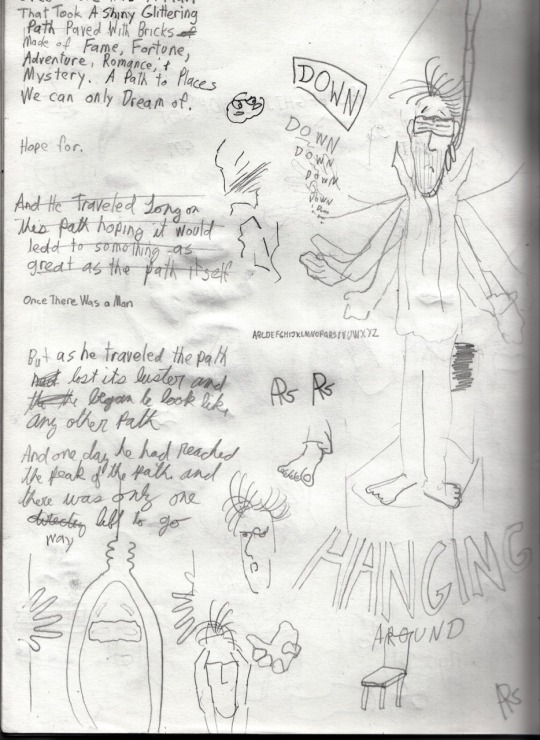 That Took A Shiny Glittering
Path Paved With Bricks of
Made of Fame, Fortune,
Adventure, Romance, +
Mystery. A Path to Places
We can only Dream of.
Hope for.
And He Traveled Long on
this path hoping it would
lead to something as
great as the path itself
Once There Was a Man
But as he traveled the path
lost its luster and
the began to look like
any other Path
And one day he had reached
the peak of the path and
there was only one
left to go
way
DOWN
DOWN
DOWN
DOWN
DOWN
ABCDEFGHIJKLMNOPQRSTUVWXYZ
ARS ARS
HANGING
AROUND
ARS